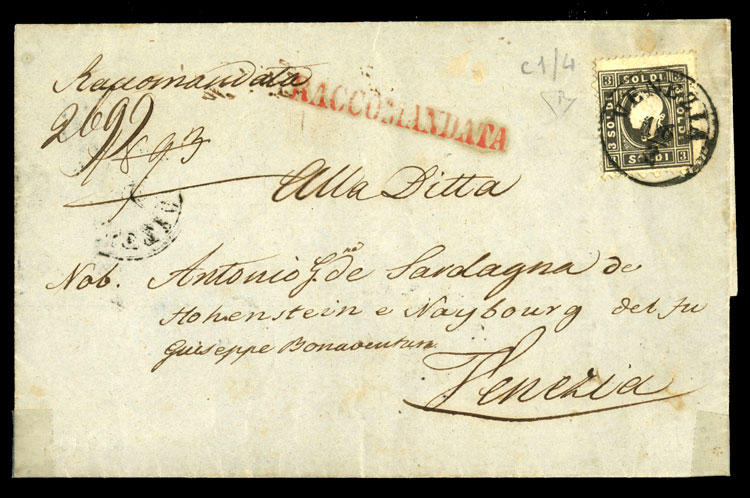 Raccomandata
2692
RACCOMANDATA
c1/4
3 SOLDI 3
SOLDI
SOLDI
3 SOLDI 3
VENEZIA
Alla Ditta
Nob. Antonio G. de Sardagna de
Hohenstein e Naybourg del fu
Guiseppe Bonaventura
Venezia